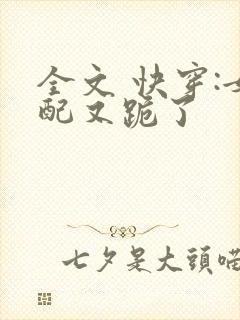 全文 快穿:女
配又跪了
七夕是大頭喵